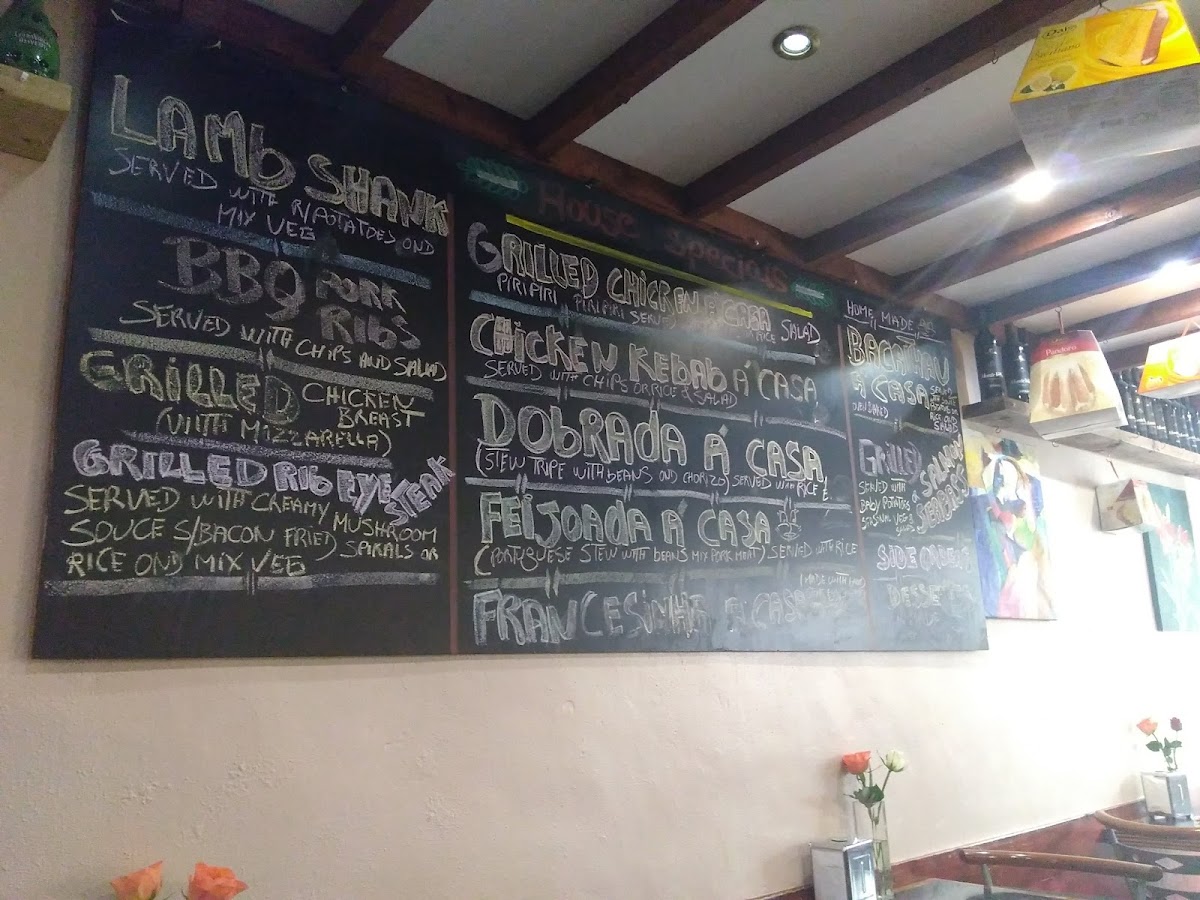 LAMb SHANK
SERVED WITH R/POTATOES OND
MIX VEG
BBQ PORK
RIBS
SERVED WITH CHIPS AND SALAD
GRILLED CHICKEN
BREAST
(WITH MIZZARELLA)
GRILLED RIB EYE STEAK
SERVED WITH CREAMY MUSHROOM
SOUCE S/BACON FRIED SPIRALS OR
RICE OND MIX VEG
House Specials
GRILLED CHICKEN A CASA
PIRIPIRI PIRIPIRI SERVED RICE SALAD
CHICKEN KEBAb A' CASA
SERVED WITH CHIPS OR RICE & SALAD
DObRADA Á CASA
(STEW TRIPE WITH BEANS OND CHORIZO) SERVED WITH RICE
FEIJOADA A' CASA
(PORTUGUESE STEW WITH BEANS MIX PORK MEAT) SERVED WITH RICE
(MADE WITH
FRANCESINHA A CASA
HOME MADE
BACALHAU
A CASA
OVEN BAKED
GRILLED
SALMON
SEABASS
SERVED WITH
BABY POTATOES
SIDE ORDERS
Pandoro